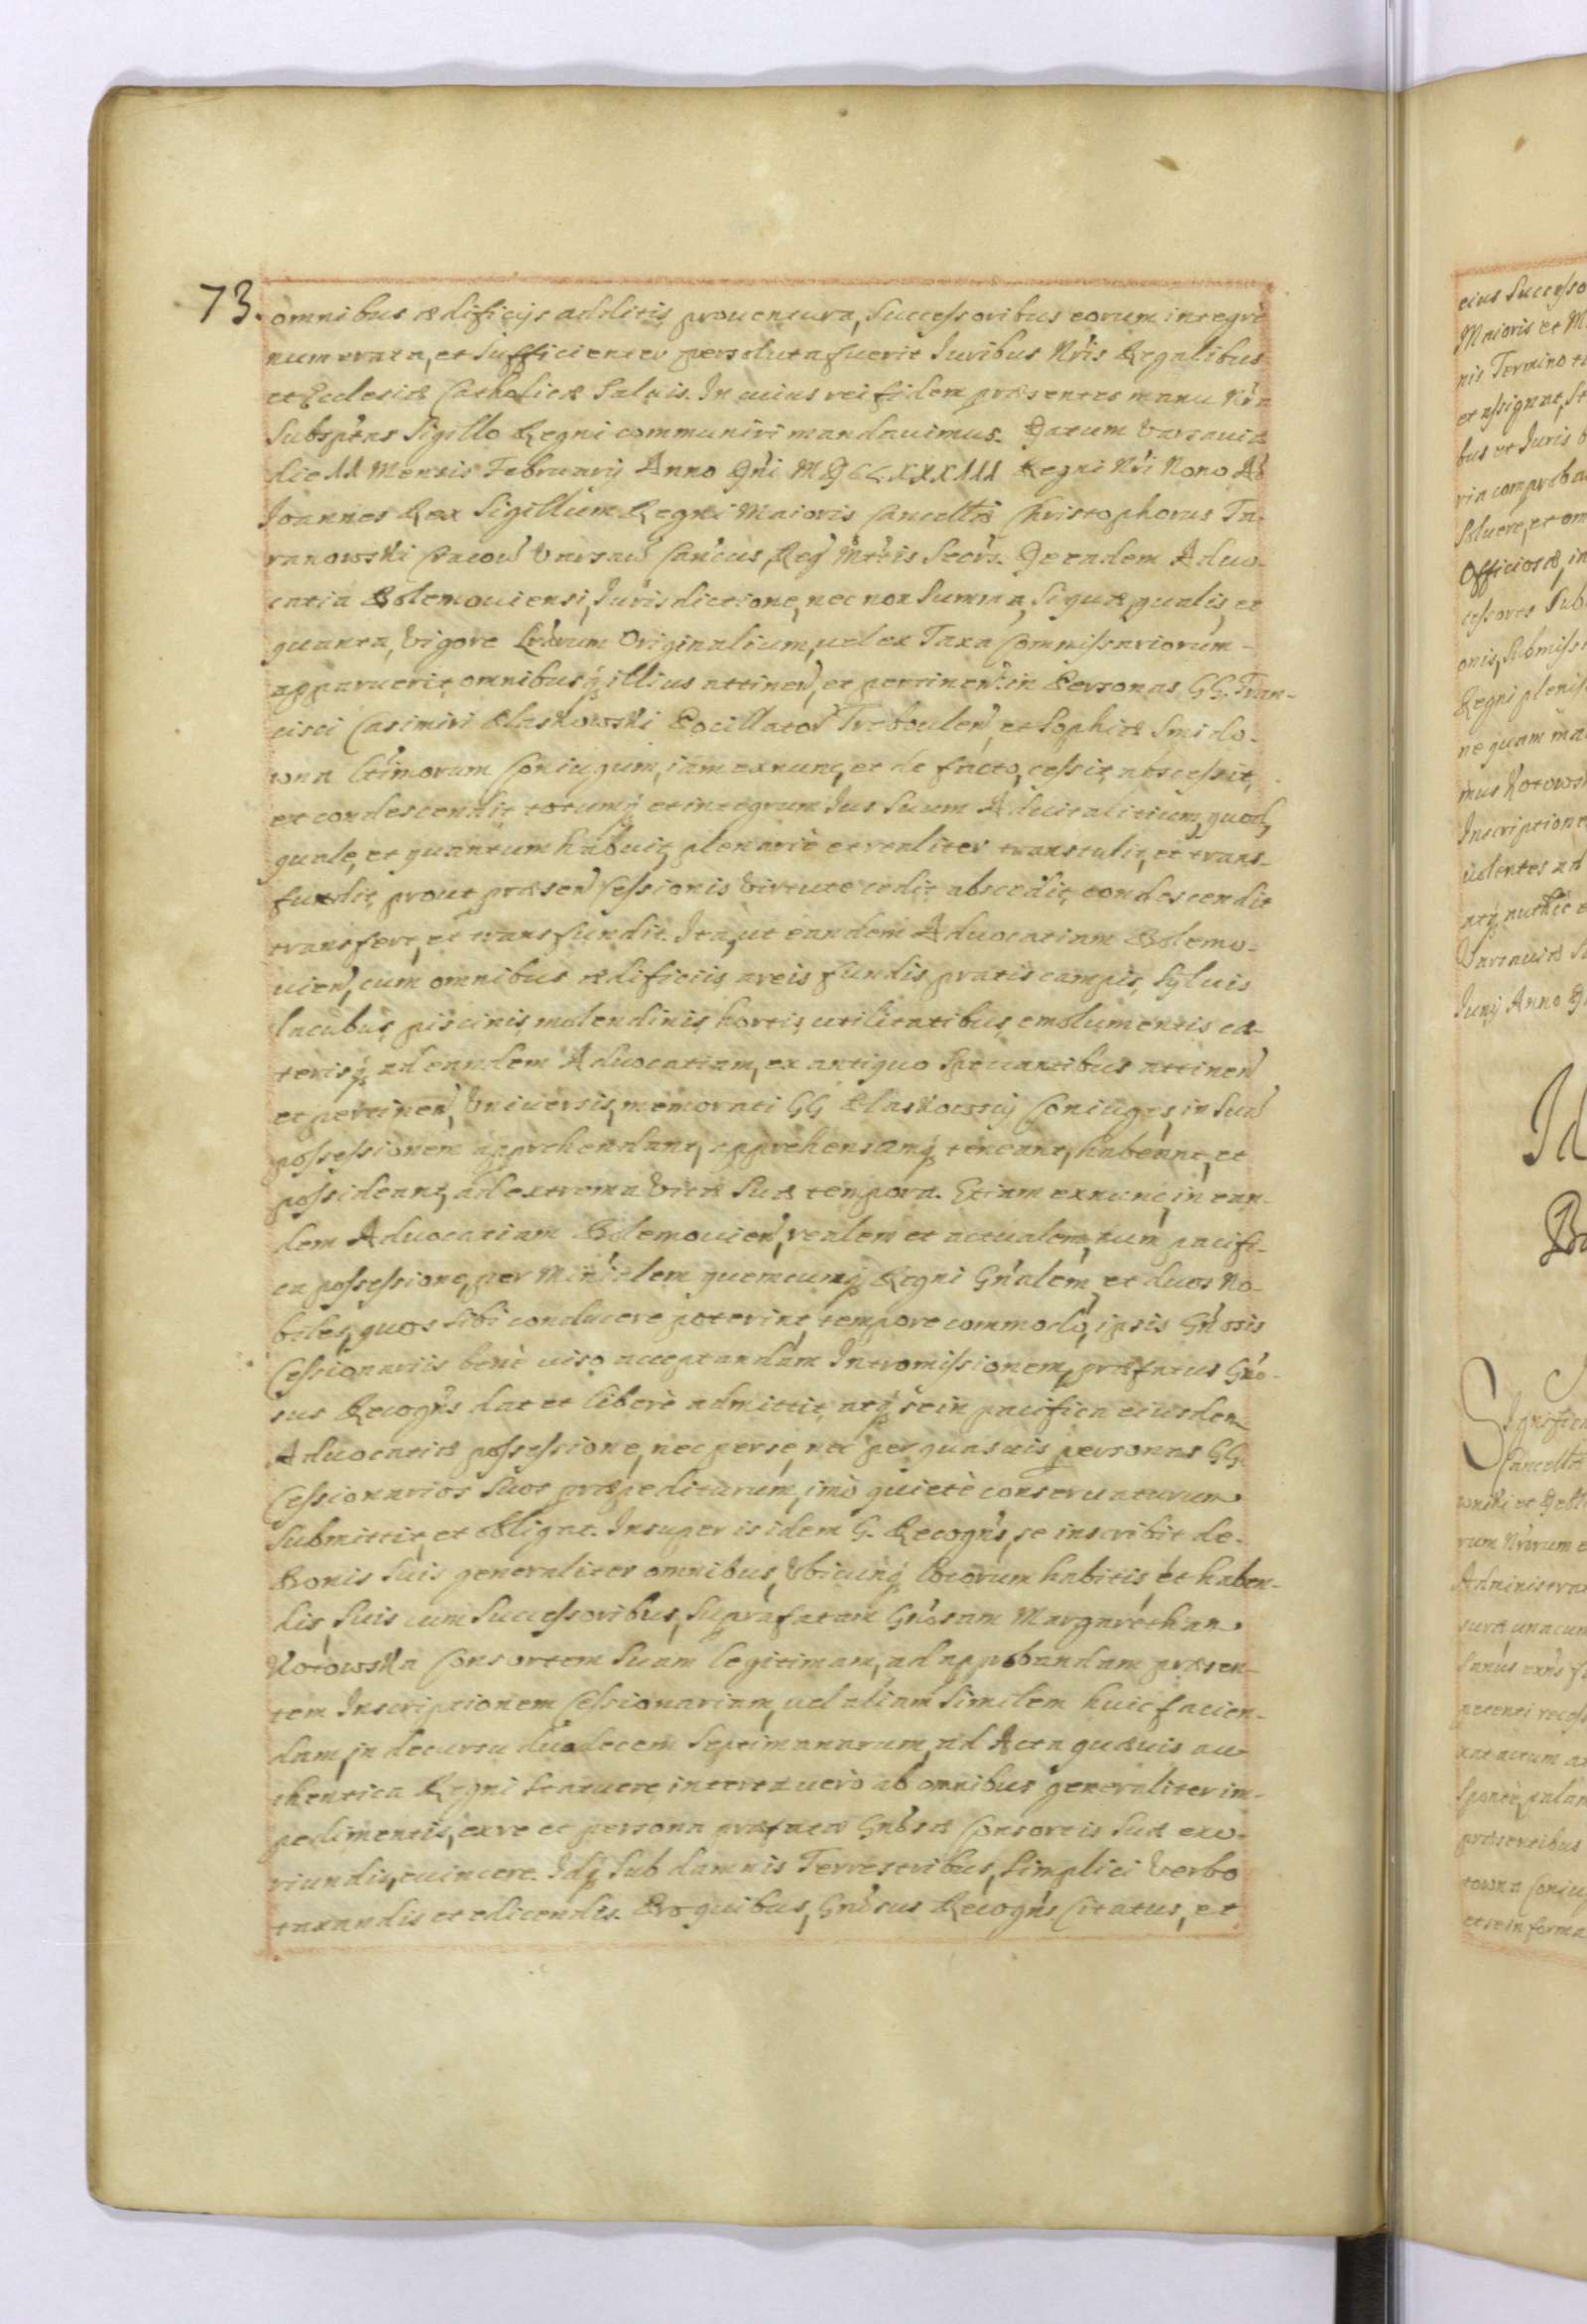 73. omnibus ædificijs additis prouentura, Successoribus eorum integrè
numerata, et sufficienter persoluta fuerit Iuribus Nr̃is Regalibus
et Ecclesiæ Catholicæ Saluis. In cuius rei fidem præsentes manu Nr̃a
Subsp̃tas Sigillo Regni communiri mandauimus. Datum Varsauiæ
die 11 Mensis Februarij Anno Dn̄i Regni Nr̃i Nono
Ioannes Rex Sigillum Regni Maioris Cancellr̃ Christophorus Ta-
ranowski Cracou Varsau Can̄cus, Reg Secr̃s. De eadem Aduo-
catia Bolemouiensi, Iurisdictione, nec non Summa, Si quæ, qualis, et
quanta, Vigore Lr̃arum Originalium, uel ex Taxa Commissariorum
apparuerit omnibusq̨ illius attinen̄, et pertinen̄. in Personas GG. Fran-
cisci Casimiri Klaskowski Pocillator Treboulen̄, et Sophiæ Smido-
wna Coniugum, iam exnunc, et de facto, cessit, abscessit,
et condescendit totumq̨ et integrum Ius Suum Aduitalitium, quod,
quale, et quantum habuit, plenariè et realiter transtulit, et trans-
fundit, prout præsen̄ Cessionis Virtute cedit abscedit, condescendit
transfert, et transfundit. Ita, ut eandem Aduocatiam Bolemo-
uien̄, cum omnibus ædificiis areis fundis, pratis campis, Syluis
lacubus, piscinis, molendinis, hortis, utilitatibus, emolumentis cæ-
terisq̨ ad eandem Aduocatiam, ex antiquo Spectantibus attinen̄
et pertinen̄, Vniuersis, memorati GG Klaskowscij Coniuges, in Suã
possessionem apprehendant, apprehensamq̨ teneant, habeant, et
possideant, ad extrema Vitæ Suæ tempora. Etiam exnunc, in ean-
dem Aduocatiam Bolemouien̄, realem et actualem, cum pacifi-
ca possessione, per Min̄ialem quemcumq̨ Regni Gn̄alem, et duos No-
biles, quos Sibi conducere poterint, tempore commodo, ipsis Gn̄osis
Cessionariis benè uiso acceptandam Intromissionem, præfatus Gn̄o-
sus Recogn̄s dat et liberè admittit, atq̨ se in pacifica eiusdem
Aduocatiæ possessione, nec per se, nec per quasuis personas GG.
Cessionarios Suos præpediturum, imò quietè conseruaturum
Submittit, et obligat. Insuper is idem G. Recogn̄s, se inscribit de
Bonis Suis generaliter omnibus, Vbicunq̨ locorum habitis et haben-
dis, Suis cum Successoribus, Suprafatam Gn̄osam Margaretham
Kotowska Consortem Suam legitimam, ad approbandam præsen-
tem Inscriptionem Cessionariam, uel aliam Similem huic facien-
dam, in decursu duodecem Septimanarum, ad Acta quæuis au-
thentica Regni Statuere, interea uerò ab omnibus generaliter im-
pedimentis, ex re et persona præfatæ Gn̄osæ Consortis Suæ exo-
riundis, euincere. Idq̨ Sub damnis Terrestribus, Simplici Verbo
taxandis et edicendis. Pro quibus, Gn̄osus Recogn̄s Citatus, et
eius Successo
Maioris et M
nis Termino
et assignat,
bus et Iuris
ria comproba
Soluere, et om
Officiosæ, in
cessores Sub
onis, Submiss
Regni plenis
ne quam
mus Kotows
Inscriptione
Varsauiæ
Iunij Anno
Cancell
rum Nr̃orum
Administra
Sponte, palam
præsentibus
towna Coniu
et se in forma